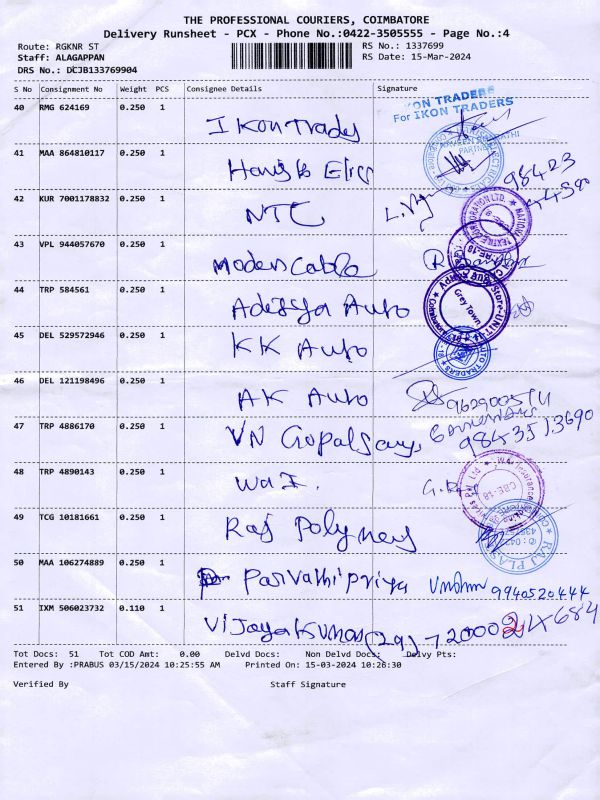 THE PROFESSIONAL COURIERS, COIMBATORE
Delivery Runsheet - PCX - Phone No.:0422-3505555 - Page No.:4
Route: RGKNR ST RS No.: 1337699
Staff: ALAGAPPAN RS Date: 15-Mar-2024
DRS No.: DCJB133769904
S No Consignment No Weight PCS Consignee Details Signature
40 RMG 624169 0.250 1 Ikon Trades
IKON TRADERS
For IKON TRADERS
PARTNER
41 MAA 864810117 0.250 1 98423
42 KUR 7001178832 0.250 1 NTC
NATIONAL TEXTILE CORPORATION LTD.
43 VPL 944057670 0.250 1 Modern Cable
44 TRP 584561 0.250 1 Aditya Auto
Grey Town
45 DEL 529572946 0.250 1 KK Auto
AUTO TRADERS
46 DEL 121198496 0.250 1 AK Auto
47 TRP 4886170 0.250 1 VN Gopalsamy 9843513690
48 TRP 4890143 0.250 1 WAI.
CBE-18
49 TCG 10181661 0.250 1 Raj Polymers
RAJ PLAS
50 MAA 106274889 0.250 1 Parvathipriya 9940520444
51 IXM 506023732 0.110 1 Vijayakumar (29) - 7200024684
Tot Docs: 51 Tot COD Amt: 0.00 Delvd Docs: Non Delvd Docs: Delvy Pts:
Entered By :PRABUS 03/15/2024 10:25:55 AM Printed On: 15-03-2024 10:26:30
Verified By Staff Signature